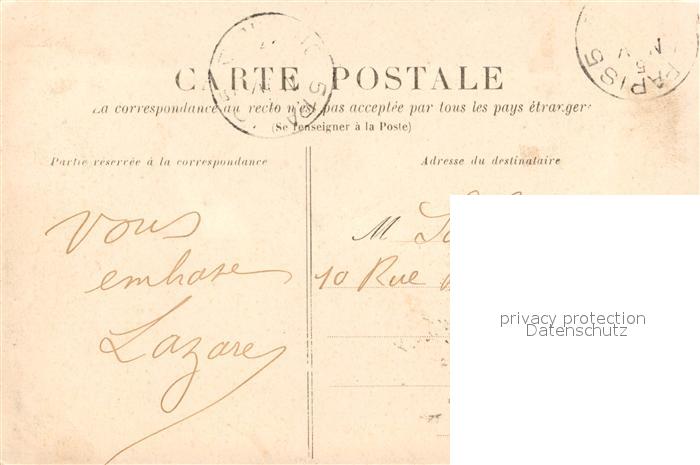 CARTE POSTALE
La correspondance au recto n'est pas acceptée par tous les pays étrangers
(Se renseigner à la Poste)
Partie réservée à la correspondance
Adresse du destinataire
Vous
embrasse
Lazare
M
10 Rue
PARIS 5
privacy protection
Datenschutz